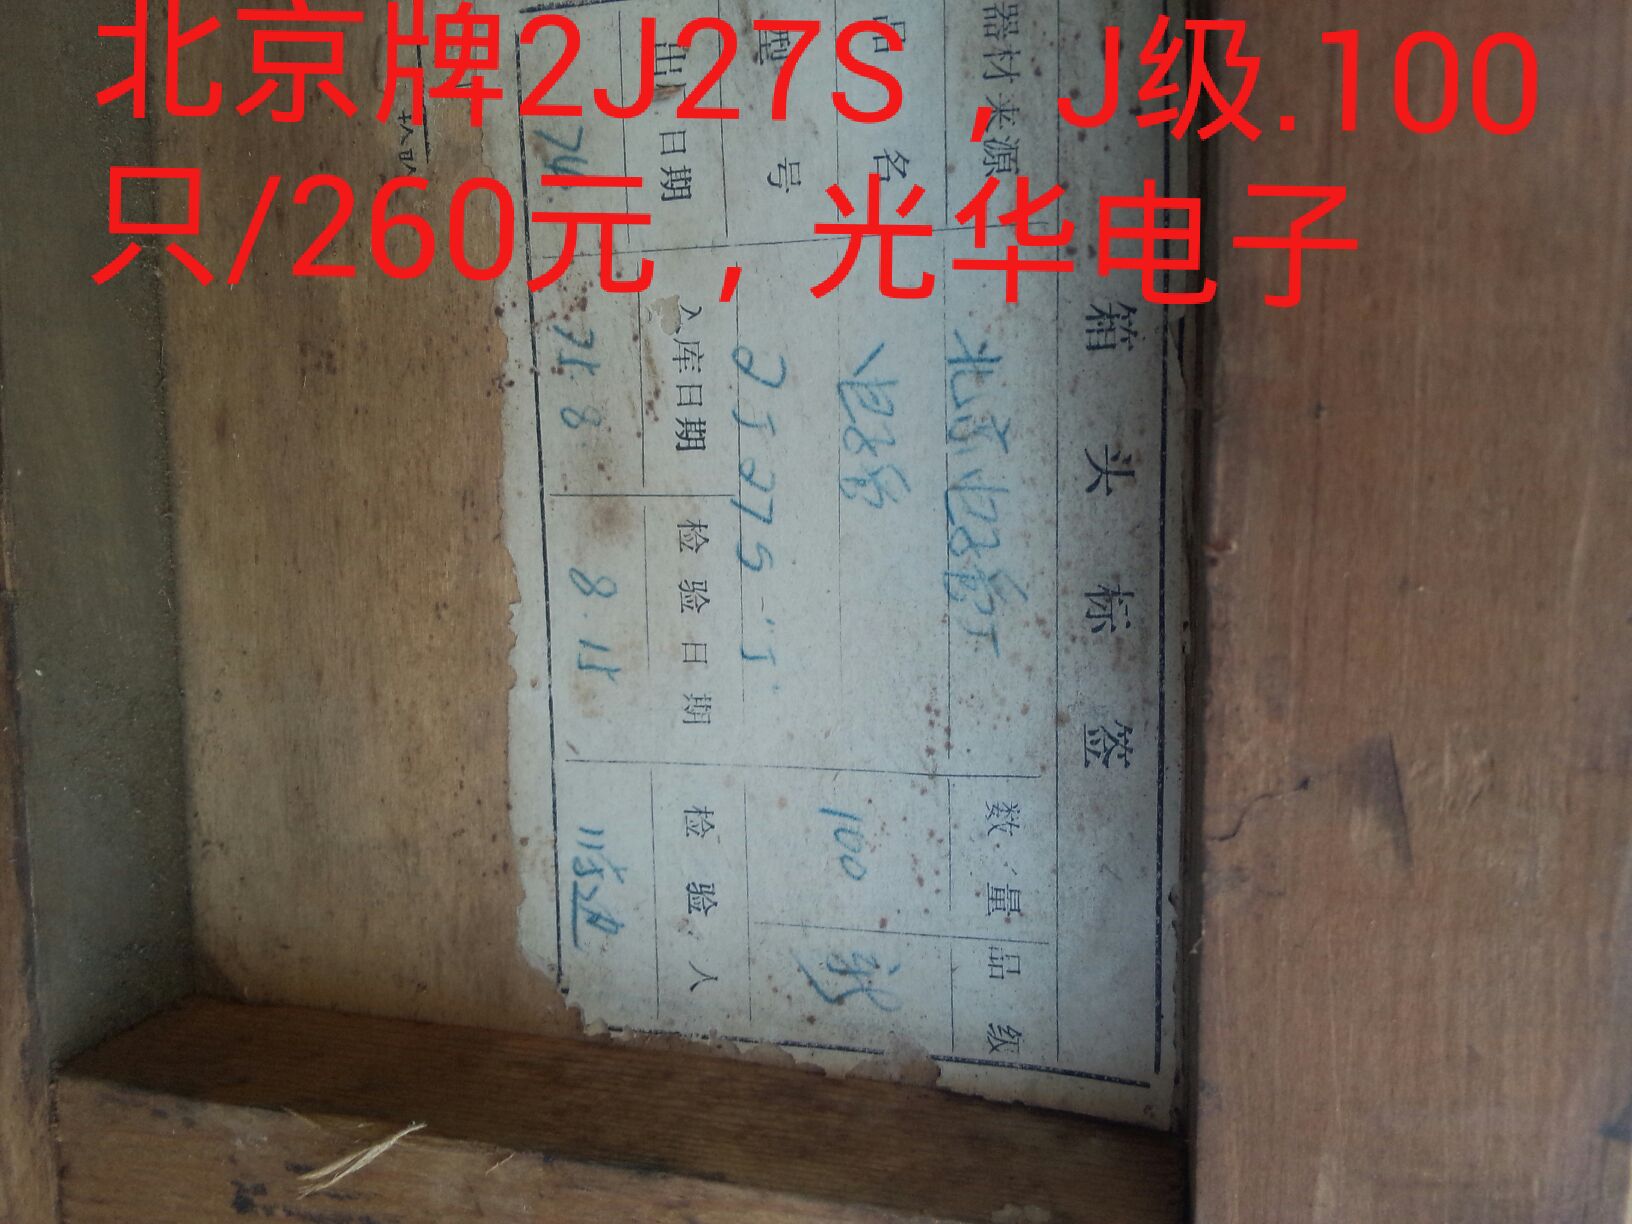 北京牌2J27S，J级.100
只/260元，光华电子
箱头标签
器材来源 北京电子管厂 数量 品级
品名 电子管 100
型号 2J27S-"J"
出厂日期 入库日期 检验日期 检验人
74. 75.8 8.15